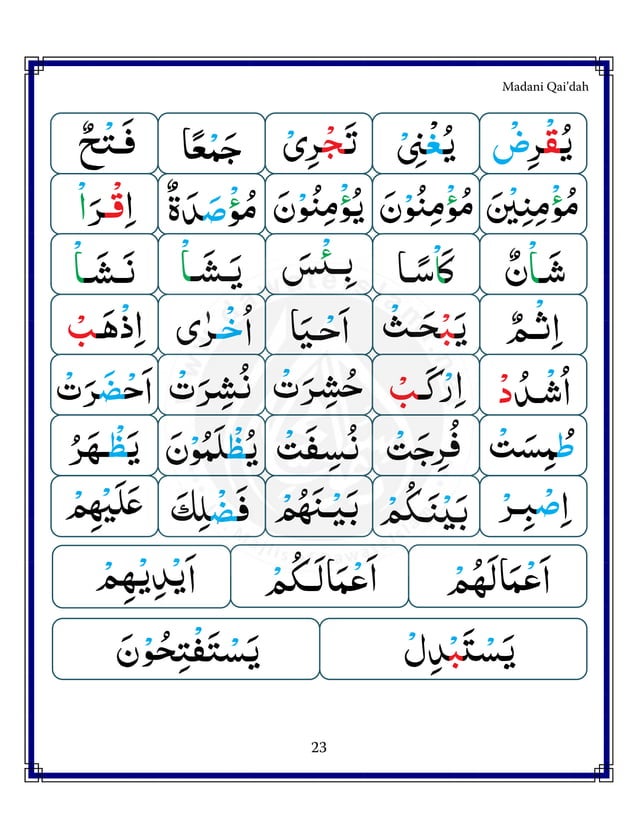 Madani Qai'dah
يُقْرِضْ يُغْنِىْ تَجْرِىْ جَمْعًا فَتْحٌ
مُؤْمِنِيْنَ مُؤْمِنُوْنَ يُؤْمِنُوْنَ مُؤْصَدَةٌ اِقْرَاْ
شَاْنٌ كَاْسًا بِئْسَ يَشَاْ نَشَاْ
اِثْمٌ يَبْحَثْ اَحْيَا اُخْرٰى اِذْهَبْ
اُشْدُدْ اِرْكَبْ حُشِرَتْ نُشِرَتْ اَحْضَرَتْ
طُمِسَتْ فُرِجَتْ نُسِفَتْ يُظْلَمُوْنَ يَظْهَرُ
اِصْبِرْ بَيْنَكُمْ بَيْنَهُمْ فَضْلِكَ عَلَيْهِمْ
اَعْمَالَهُمْ اَعْمَالَكُمْ اَيْدِيْهِمْ
يَسْتَبْدِلْ يَسْتَفْتِحُوْنَ
23